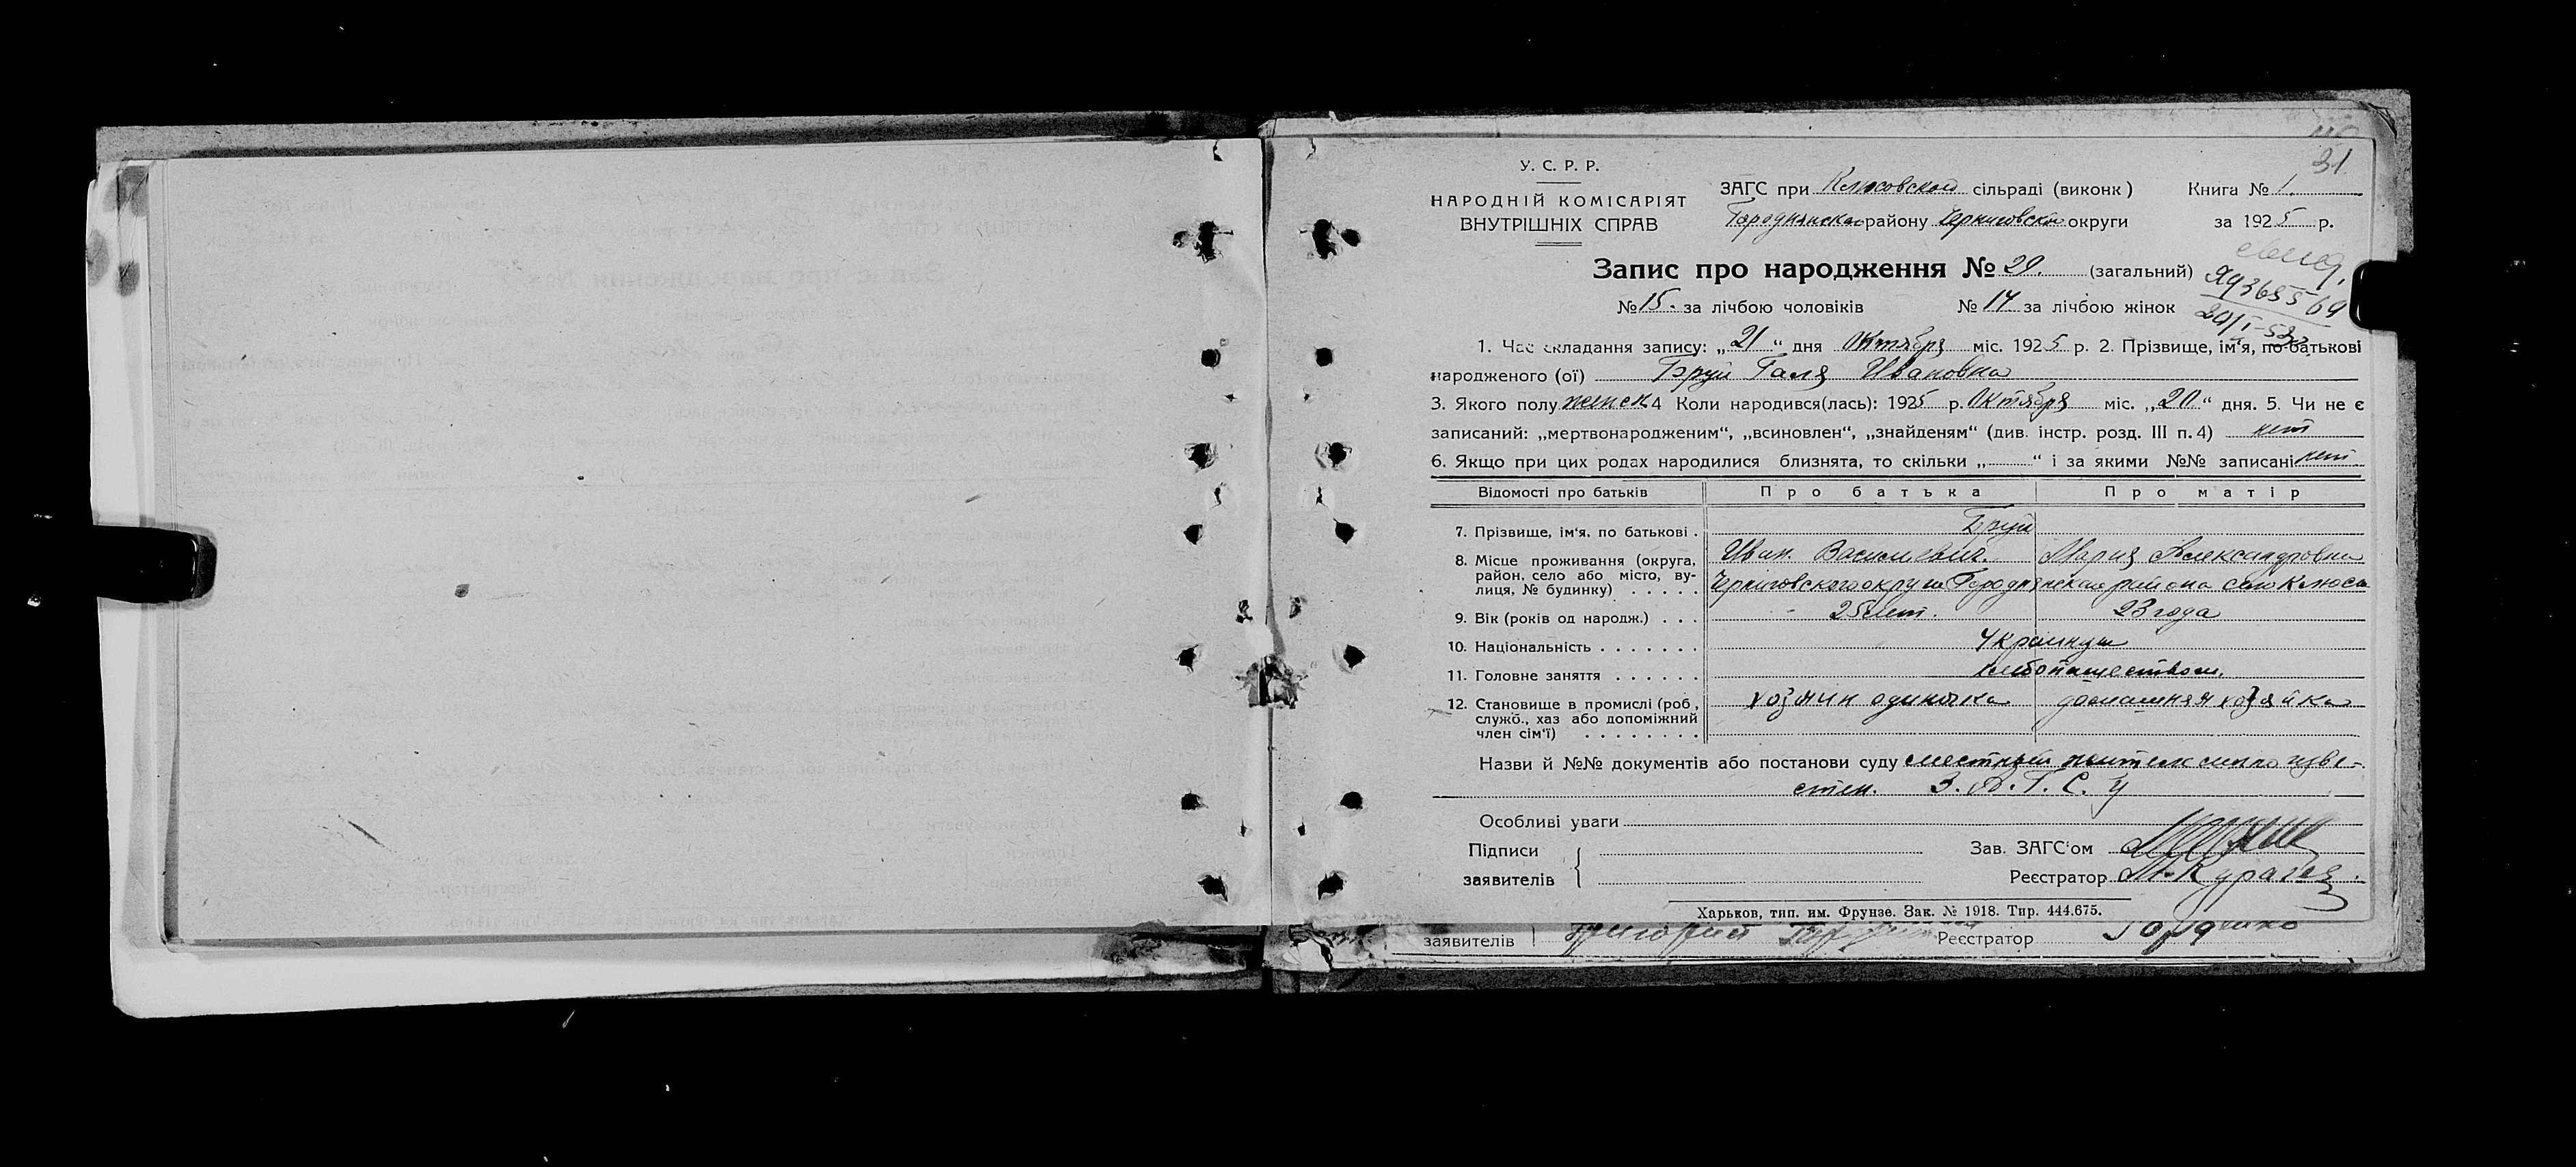 31
У. С. Р. Р.
НАРОДНІЙ КОМІСАРІЯТ
ВНУТРІШНІХ СПРАВ
ЗАГС при Клюсовской сільраді (виконк) Книга № 1
Городнянска району Черниговской округи за 1925 р.
Запис про народження № 29. (загальний)
№ 15. за лічбою чоловіків № 14 за лічбою жінок
1. Час складання запису: „21“ дня Октября міс. 1925 р. 2. Прізвище, ім'я, по-батькові
народженого (ої) Бруй Галя Ивановна
3. Якого полу женск 4 Коли народився(лась): 1925 р. Октября міс. „20“ дня. 5. Чи не є
записаний: „мертвонародженим“, „всиновлен“, „знайденям“ (див. інстр. розд. III п. 4) нет
6. Якщо при цих родах народилися близнята, то скільки „ “ і за якими №№ записані нет
Відомості про батьків Про батька Про матір
7. Прізвище, ім'я, по батькові . Бруй
Иван Василевич. Мария Александровна
8. Місце проживання (округа,
район, село або місто, ву-
лиця, № будинку) . . . . . Черниговского округа Городнянская района село Клюсы
9. Вік (років од народж.) . . . 25 лет. 23 года
10. Національність . . . . . . . Украинцы
11. Головне заняття . . . . . . хлебопашеством.
12. Становище в промислі (роб,
служб., хаз або допоміжний
член сім'ї) . . . . . . . . хозяин одиночка домашняя хозяйка
Назви й №№ документів або постанови суду местный житель лично изве-
стен. З. А. Г. С. у
Особливі уваги
Підписи
заявителів
Зав. ЗАГС'ом
Реєстратор
Харьков, тип. им. Фрунзе. Зак. № 1918. Тир. 444.675.
заявителів Григорий Реєстратор